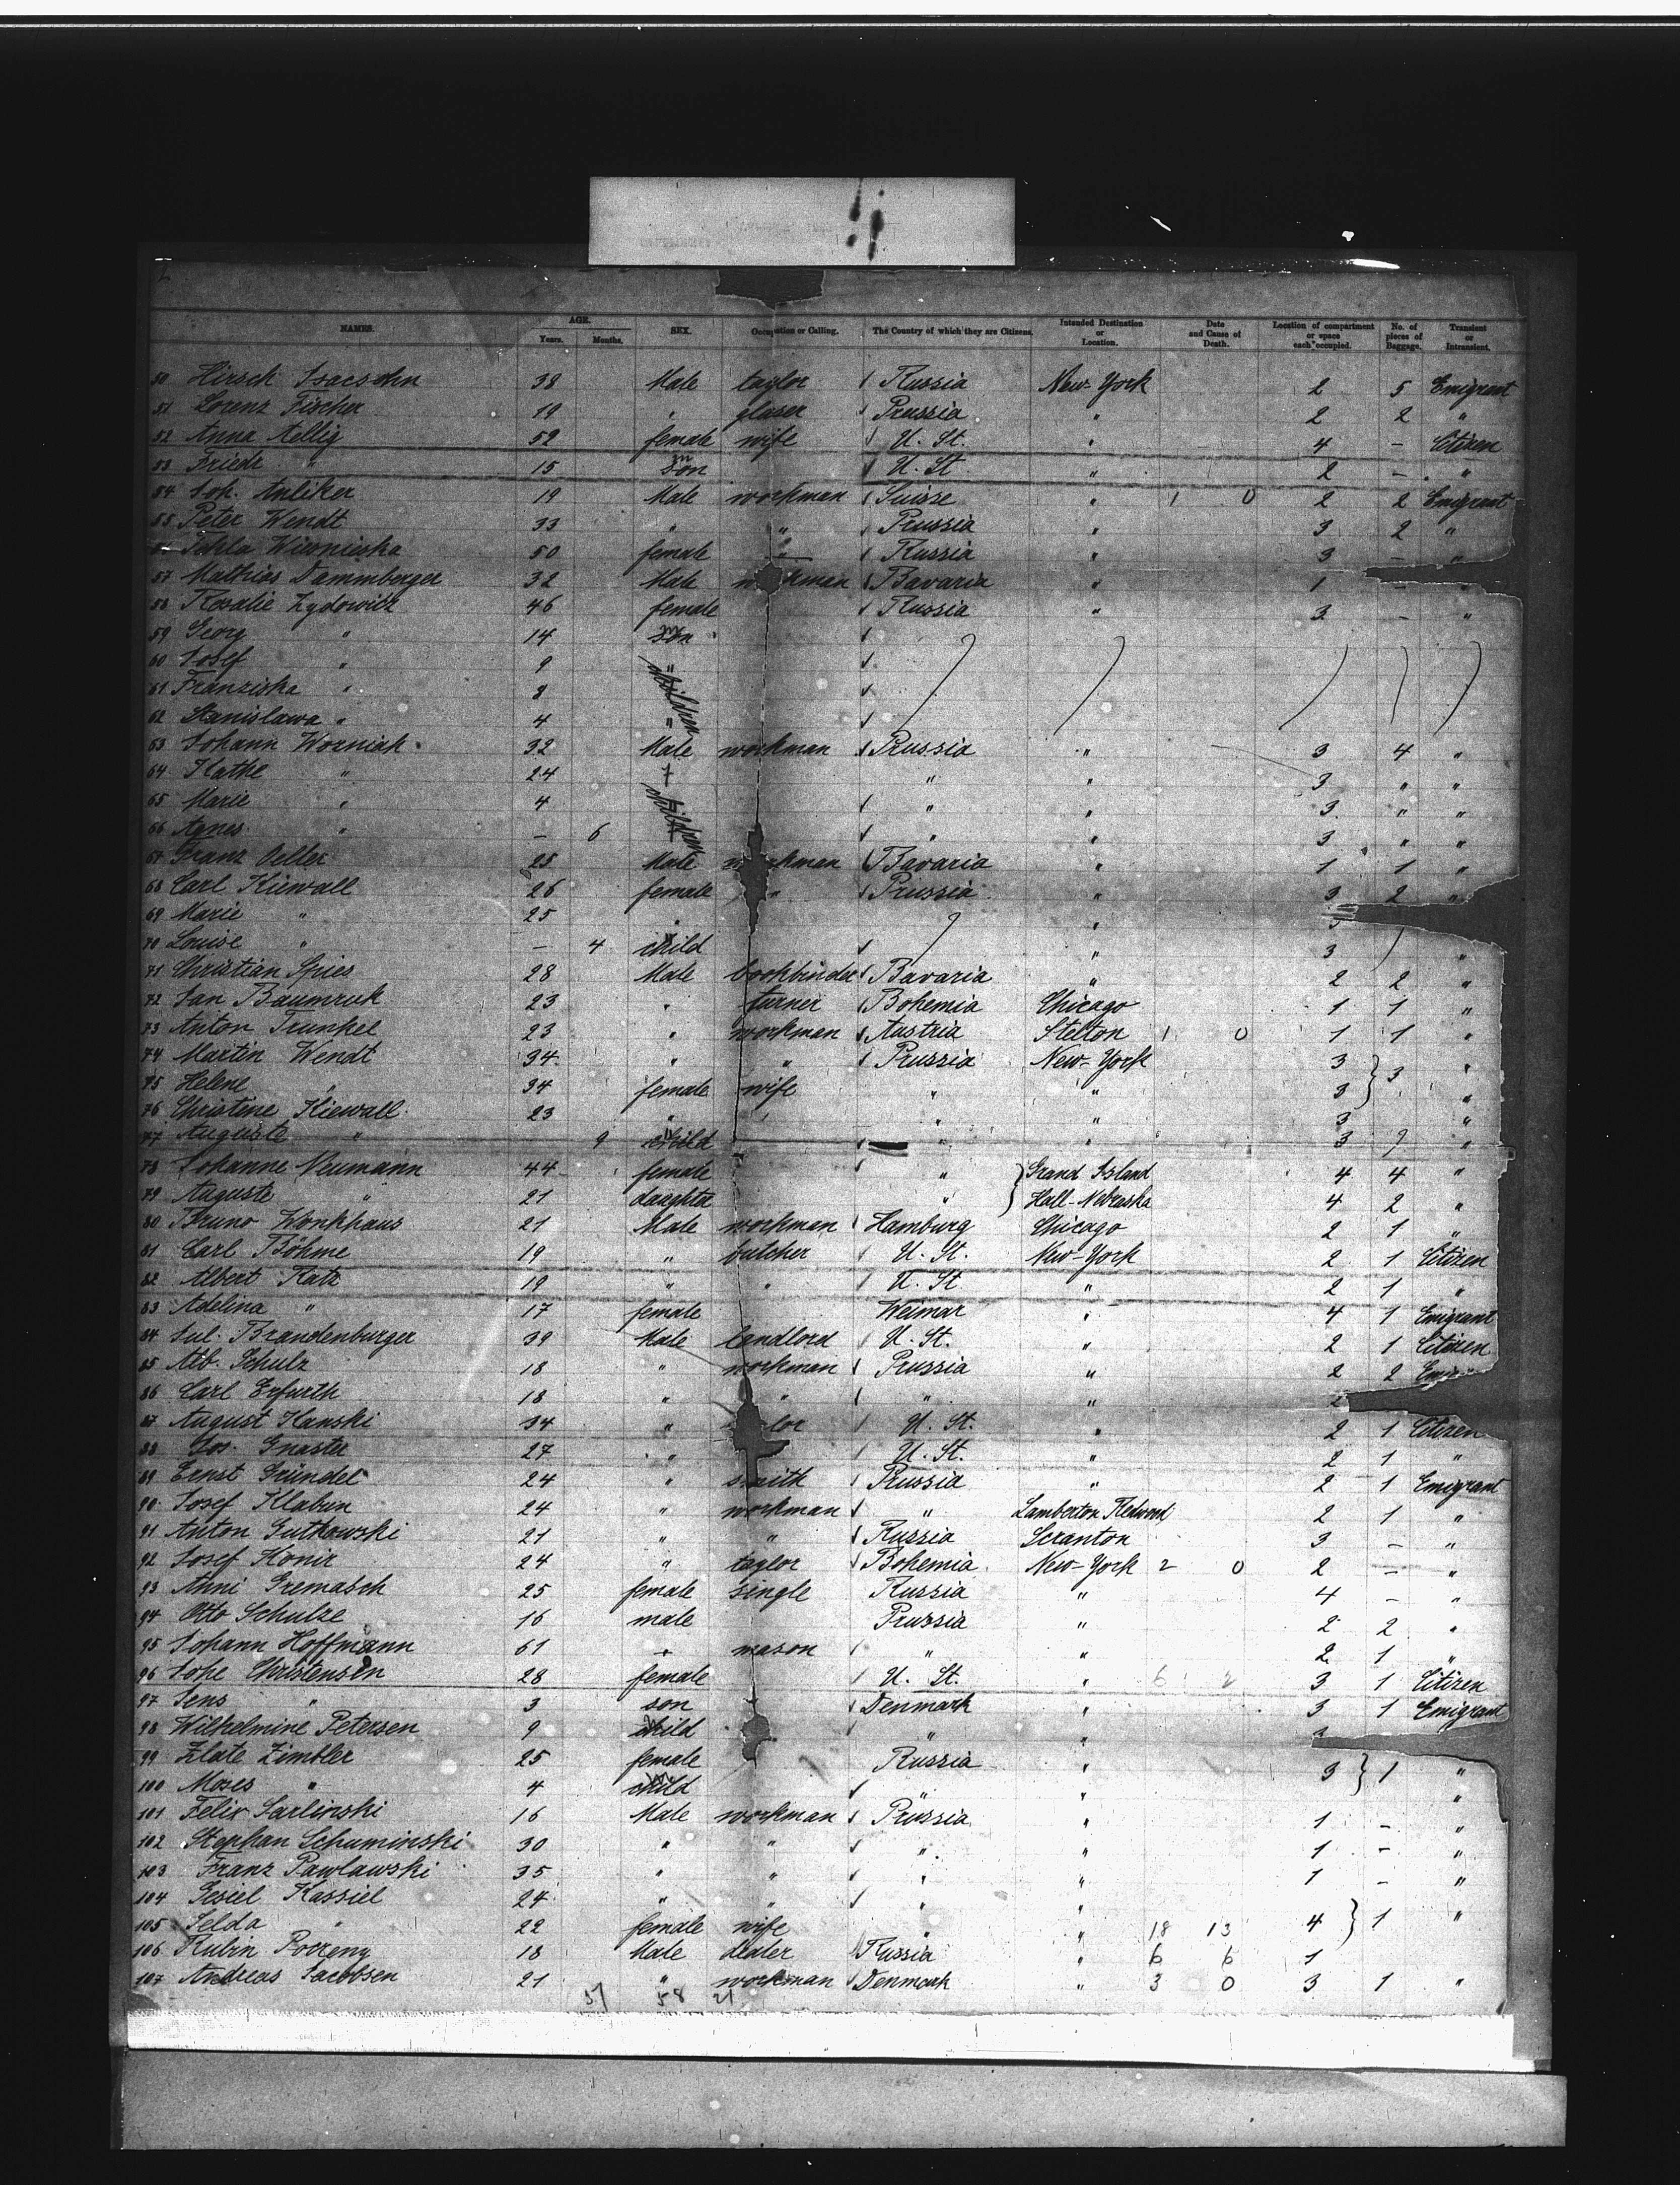 NAMES. AGE. Years. Months. SEX. Occupation or Calling. The Country of which they are Citizens. Intended Destination or Location. Date and Cause of Death. Location of compartment or space each occupied. No. of pieces of Baggage. Transient or Intransient.
50 Hirsch Isacsohn 38 Male taylor Russia New-York 2 5 Emigrant
51 Lorenz Fischer 19 " glaser Prussia " 2 2 "
52 Anna Aellig 52 female wife U. St. " 4 – Citizen
53 Friedr " 15 son U. St " 2 – "
54 Joh. Anliker 19 Male workman Suisse " 1 0 2 2 Emigrant
55 Peter Wendt 33 " " Prussia " 3 2 "
50 female " Russia " 3 – "
57 Mathias Dammberger 32 Male workman Bavaria " 1 – "
58 Rosalie Zydowicz 46 female Russia " 3 – "
59 Georg " 14 son
60 Josef " 9 "
61 Franziska " 8 children
62 Stanislawa " 4 "
63 Johann Worniak 32 Male workman Prussia " 3 4 "
64 Kathe " 24 " " 3 " "
65 Marie " 4 children " " 3 " "
66 Agnes " – 6 " " 3 " "
67 Franz Oeller 25 Male workman Bavaria " 1 1 "
68 Carl Kiewall 26 female " Prussia " 3 2 "
69 Marie " 25 " " 3
70 Louise " – 4 child " 3 "
71 Christian Spies 28 Male bookbinder Bavaria " 2 2 "
72 Jan Baumruk 23 " turner Bohemia Chicago 1 1 "
73 Anton Trunkel 23 " workman Austria Stelton 1 0 1 1 "
74 Martin Wendt 34 " " Prussia New-York 3 3 "
75 Helene " 34 female wife " " 3 "
76 Christine Kiewall 23 " " " 3 "
77 Auguste " 9 child " " 3 "
78 Johanne Neumann 44 female " Grand Island 4 4 "
79 Auguste " 21 daughter " Hall-Nebraska 4 2 "
80 Bruno Wonkhaus 21 Male workman Hamburg Chicago 2 1 "
81 Carl Böhme 19 " butcher U. St. New-York 2 1 Citizen
82 Albert Katz 19 " " U. St " 2 1 "
83 Adelina " 17 female Weimar " 4 1 Emigrant
84 Jul. Brandenburger 39 Male landlord U. St. " 2 1 Citizen
85 Alb. Schulz 18 " workman Prussia " 2 2
86 Carl Erfurth 18 " " " " 2
87 August Kanski 34 " U. St. " 2 1 Citizen
88 Jos. Gnaster 27 " U. St. " 2 1 "
89 Ernst Gründel 24 " smith Prussia " 2 1 Emigrant
90 Josef Klabun 24 " workman " Lamberton Redwood 2 1 "
91 Anton Gutkowski 21 " " Russia Scranton 3 – "
92 Josef Konir 24 " taylor Bohemia New-York 2 0 2 – "
93 Anni Gremasch 25 female single Russia " 4 – "
94 Otto Schulze 16 male Prussia " 2 2 "
95 Johann Hoffmann 61 " mason " " 2 1 "
96 Christensen 28 female U. St. " 6 2 3 1 Citizen
97 Jens " 3 son Denmark " 3 1 Emigrant
98 Wilhelmine Petersen 9 child " " 3
99 Zlate Zimbler 25 female Russia 3 1 "
100 Moses " 4 child " " "
101 Felix Sarlinski 16 Male workman Prussia " 1 – "
102 Stephan Schuminski 30 " " " " 1 – "
103 Franz Pawlawski 35 " " " " 1 – "
104 Jesiel Kassiel 24 " " " "
105 Selda " 22 female wife " " 18 13 4 1 "
106 Rubin 18 Male dealer Russia " 6 6 1
107 Andreas Jacobsen 21 " workman Denmark " 3 0 3 1 "
51 58 21